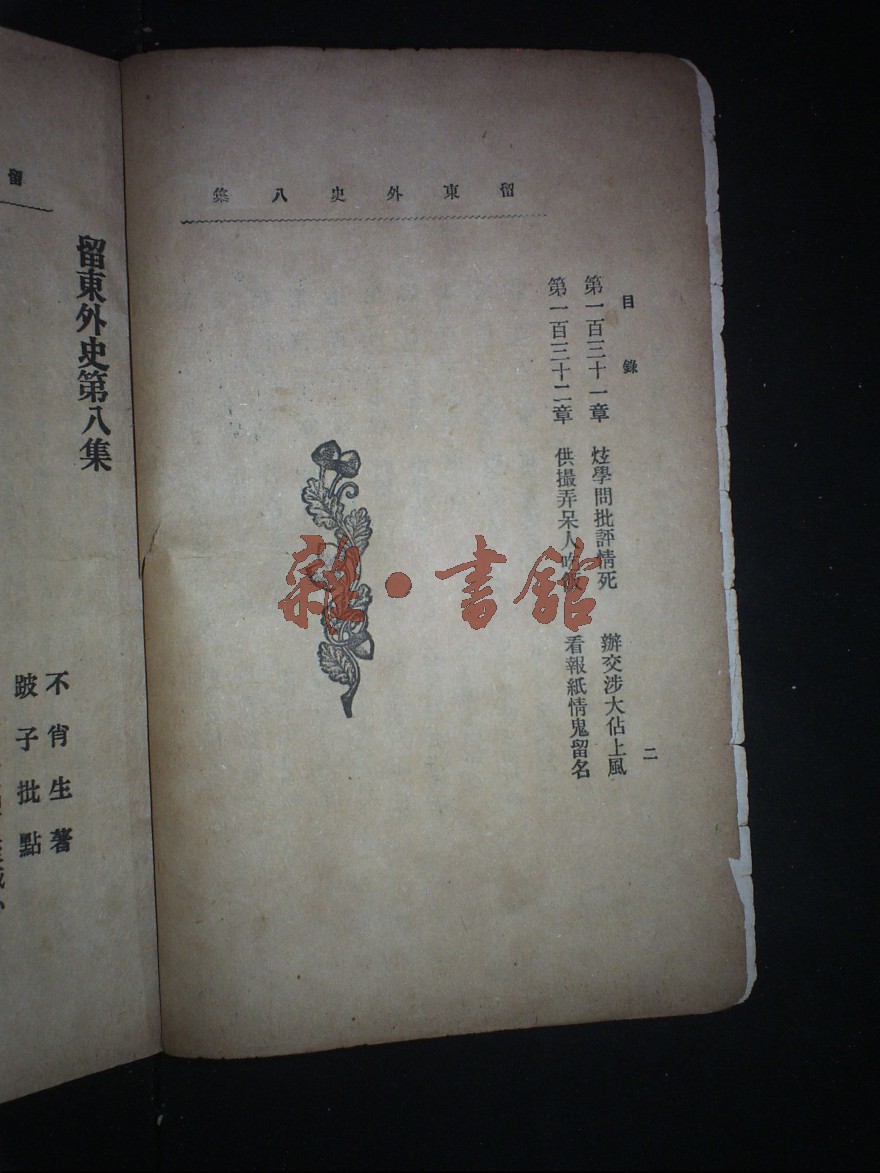 留東外史八集
目錄
二
第一百三十一章 炫學問批評情死 辦交涉大佔上風
第一百三十二章 供撮弄呆人吃飯 看報紙情鬼留名
雜·書館
留
留東外史第八集
不肖生著
跛子批點